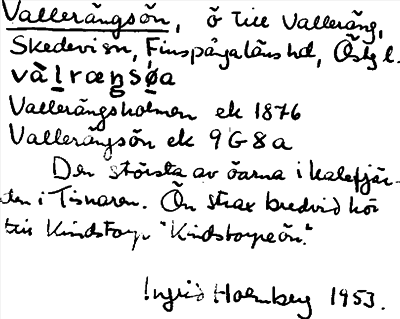 Vallerängsön, ö till Valleräng,
Skedevi sn, Finspångaläns hd, Östgl.
vàlræŋsøa
Vallerängsholmen ek 1876
Vallerängsön ek 9G8a
Den största av öarna i Kalvfjär-
den i Tisnaren. Ön strax bredvid hör
till Kindstorp "Kindstorpeön."
Ingrid Holmberg 1953.